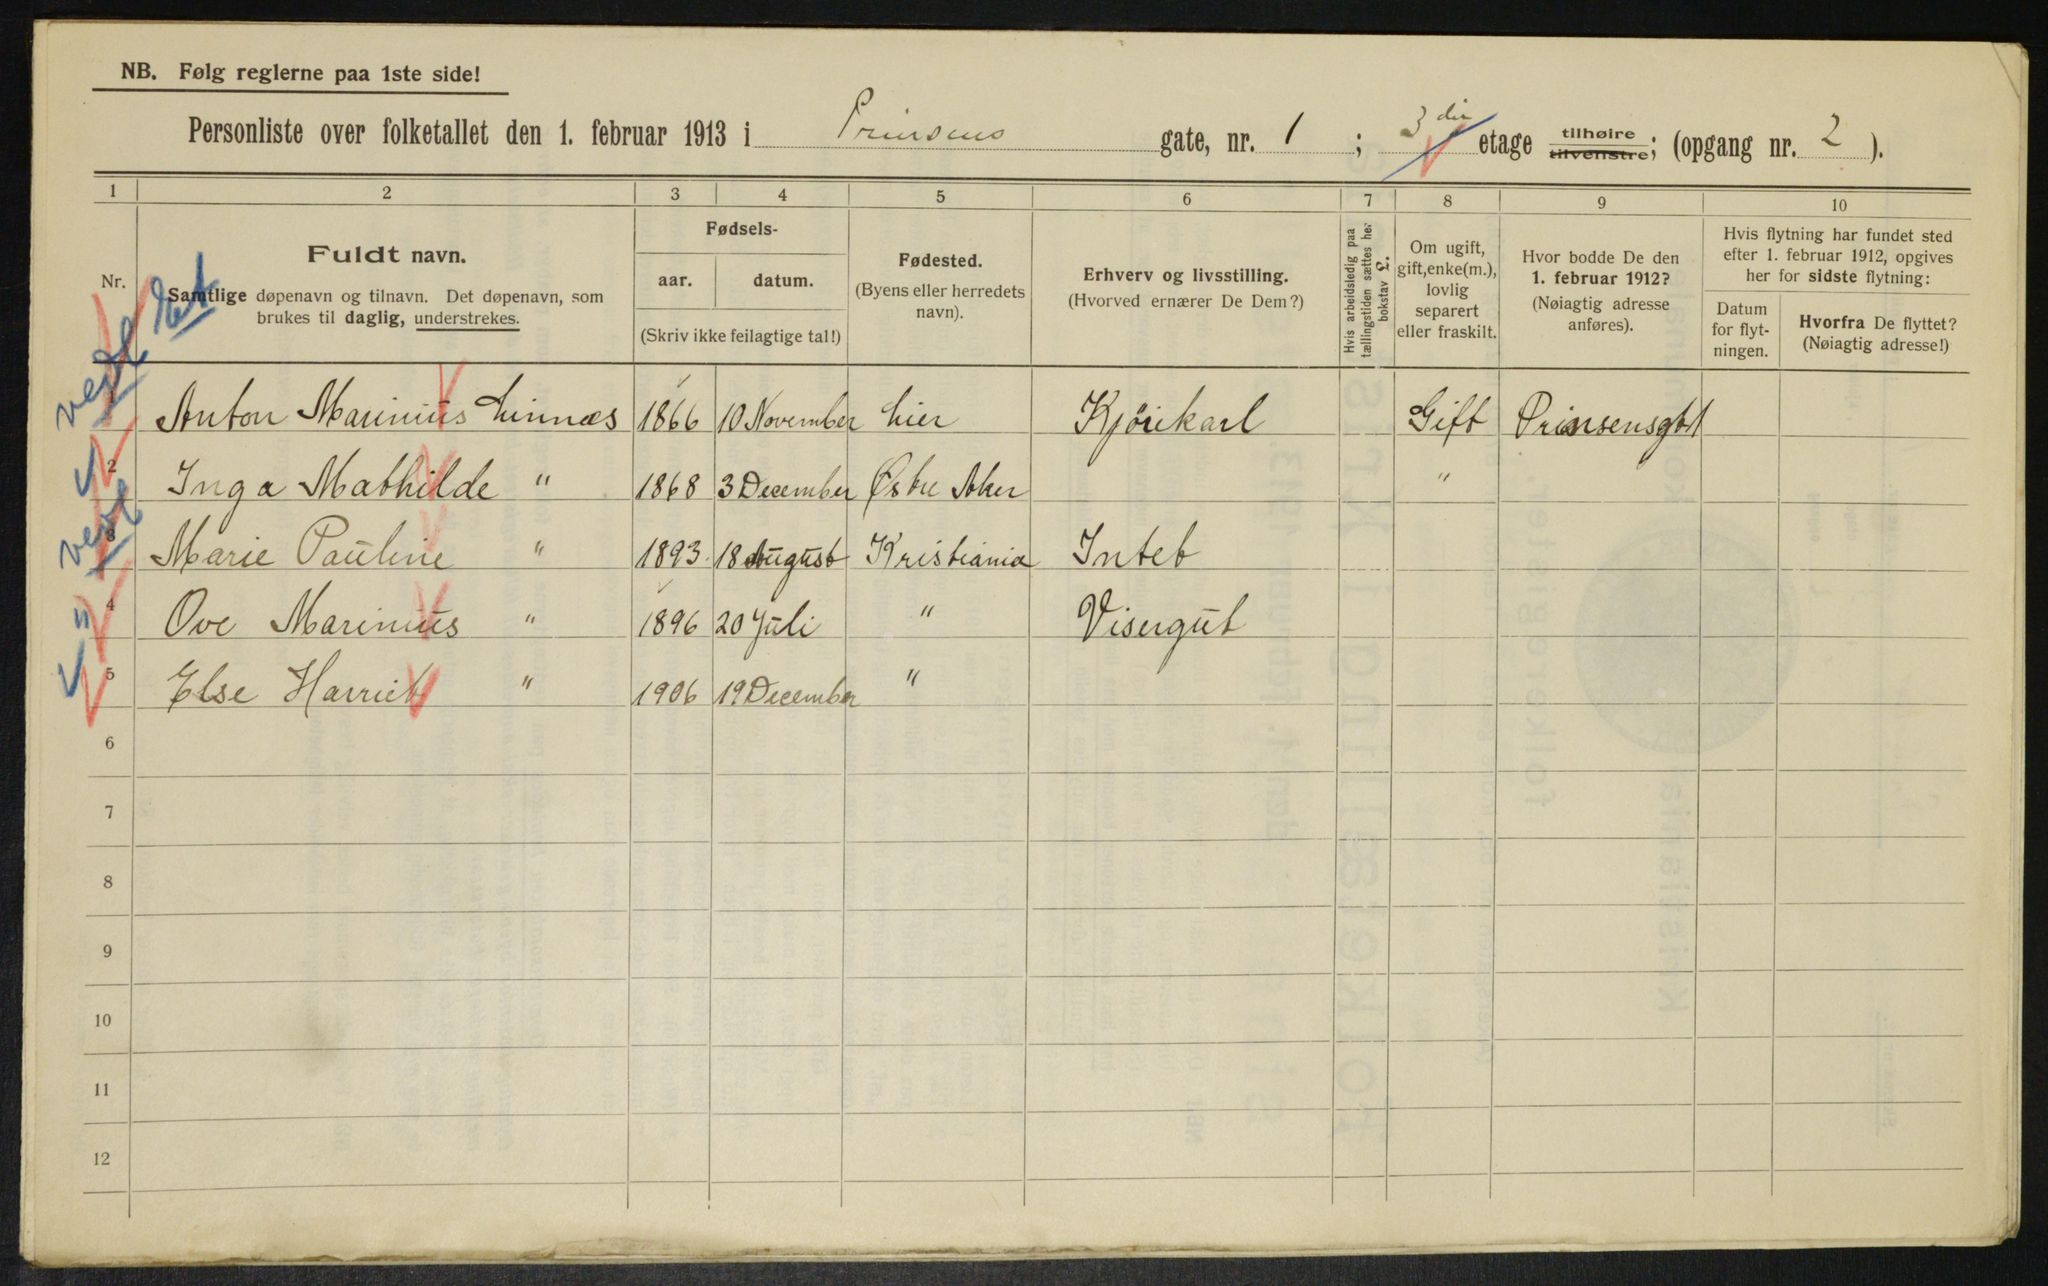 NB. Følg reglerne paa 1ste side!
Personliste over folketallet den 1. februar 1913 i Prinsens gate, nr. 1 ; 3die etage tilhøire tilvenstre; (opgang nr. 2 ).
1 2 3 4 5 6 7 8 9 10
Nr.
Fuldt navn.
Samtlige døpenavn og tilnavn. Det døpenavn, som
brukes til daglig, understrekes.
Fødsels-
aar. datum.
(Skriv ikke feilagtige tal!)
Fødested.
(Byens eller herredets
navn).
Erhverv og livsstilling.
(Hvorved ernærer De Dem?)
Hvis arbeidsledig paa
tællingstiden sættes her
bokstav L.
Om ugift,
gift, enke(m.),
lovlig
separert
eller fraskilt.
Hvor bodde De den
1. februar 1912?
(Nøiagtig adresse
anføres).
Hvis flytning har fundet sted
efter 1. februar 1912, opgives
her for sidste flytning:
Datum
for flyt-
ningen.
Hvorfra De flyttet?
(Nøiagtig adresse!)
1 Anton Marinius Linnæs 1866 10 November Lier Kjørekarl Gift Prinsensgt 1
2 Inga Mathilde " 1868 3 December Østre Aker "
3 Marie Pauline " 1893 18 August Kristiania Intet
4 Ove Marinius " 1896 20 Juli " Visergut
5 Else Harriet " 1906 19 December "
6
7
8
9
10
11
12